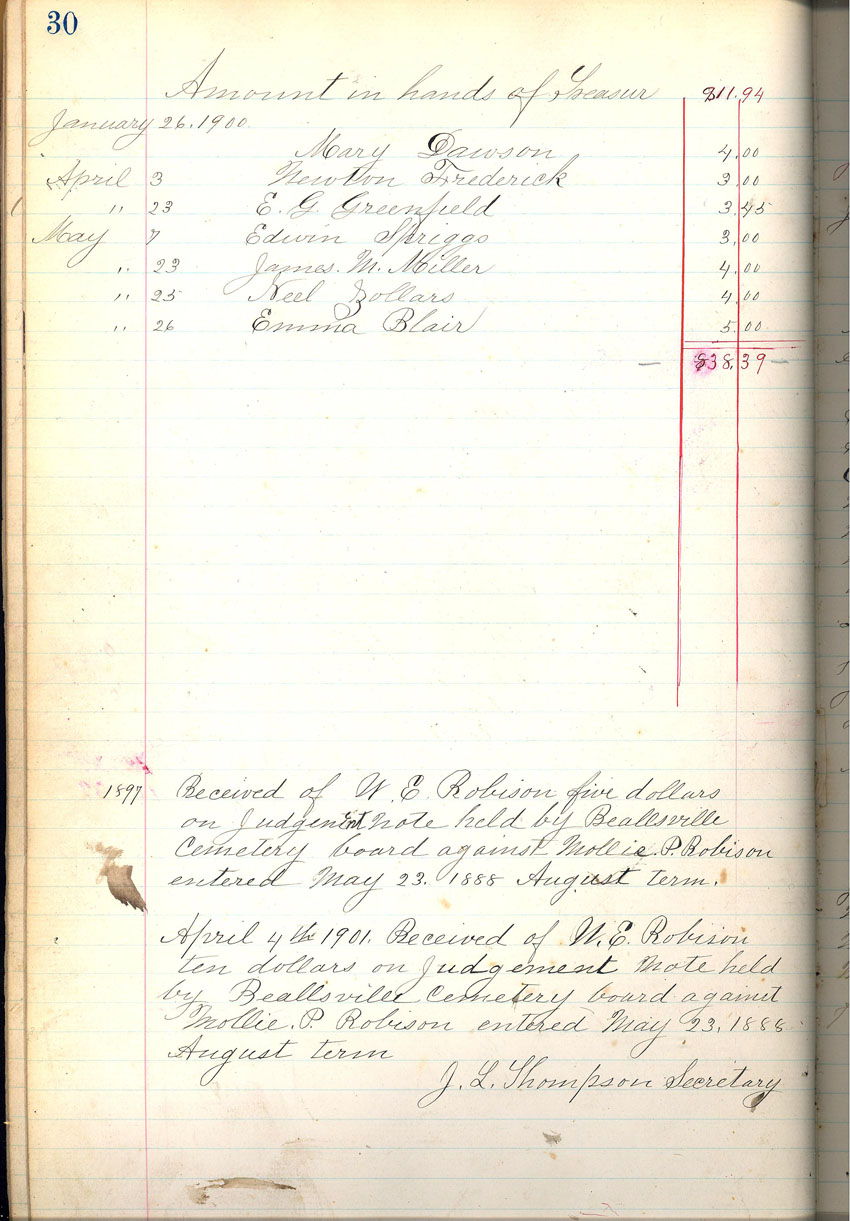 30
Amount in hands of Treasur $11.94
January 26. 1900.
Mary Dawson 4.00
April 3 Newton Frederick 3.00
" 23 E. G. Greenfield 3.45
May 7 Edwin Spriggs 3.00
" 23 James. M. Miller 4.00
" 25 Neel Zollars 4.00
" 26 Emma Blair 5.00
$38.39
1897 Received of W. E. Robison five dollars
on Judgement Note held by Beallsville
Cemetery board against Mollie. P. Robison
entered May 23. 1888 August term.
April 4th 1901. Received of W. E. Robison
ten dollars on Judgement Note held
by Beallsville Cemetery board against
Mollie. P. Robison entered May 23, 1888
August term
J. L. Thompson Secretary